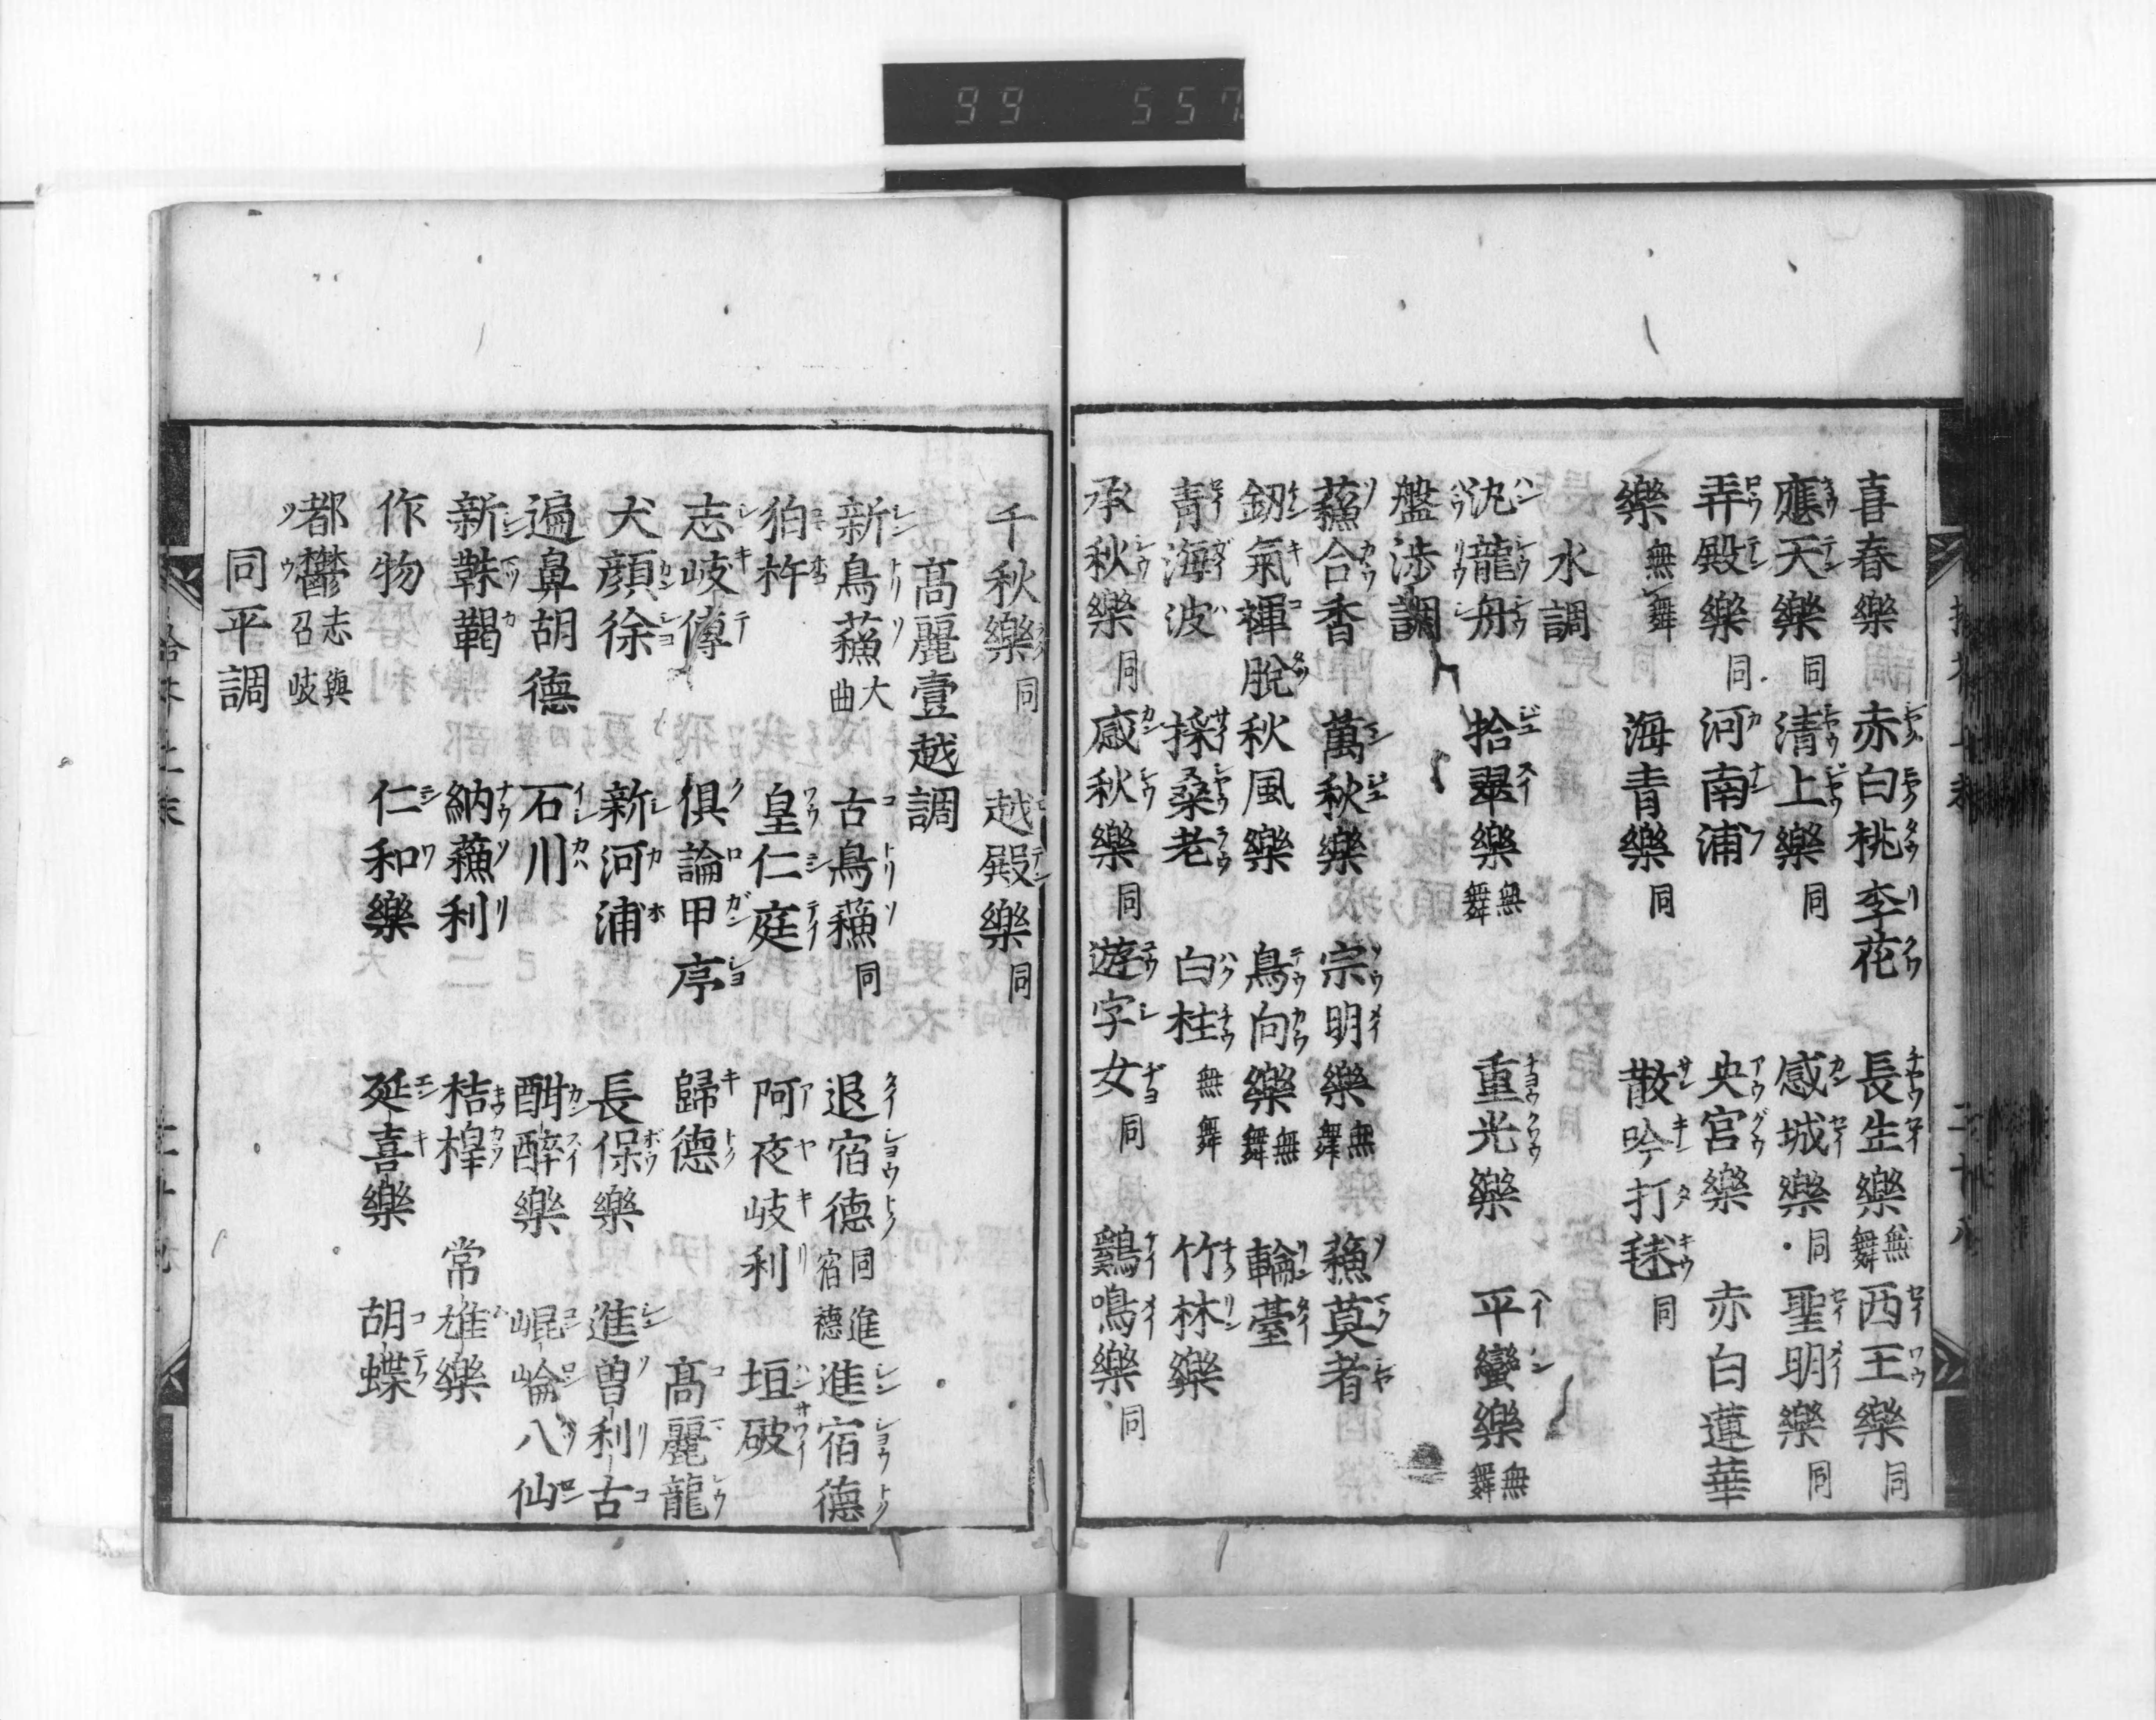 99 557
喜春樂 赤白桃李花 長生樂無舞 西王樂同
應天樂同 清上樂同 感城樂同 聖明樂同
弄殿樂同 河南浦 央宮樂 赤白蓮華
樂無舞 海青樂同 散吟打毬同
水調
沈龍舟 拾翠樂無舞 重光樂 平蠻樂無舞
盤渉調
蘓合香 萬秋樂 宗明樂無舞 蘓莫者
釼氣褌脫 秋風樂 鳥向樂無舞 輪臺
青海波 採桑老 白柱無舞 竹林樂
承秋樂同 感秋樂同 遊字女同 鷄鳴樂同
千秋樂同 越殿樂同
髙麗壹越調
新鳥蘓大曲 古鳥蘓同 退宿德同進宿德 進宿德
狛杵 皇仁庭 阿夜岐利 垣破
志岐傳 俱論甲序 歸德 髙麗龍
犬顔徐 新河浦 長保樂 進曽利古
遍鼻胡德 石川 酣醉樂 崐崘八仙
新靺鞨 納蘓利 桔槹 常雄樂
作物 仁和樂 延喜樂 胡蝶
都鬱志與召岐
同平調